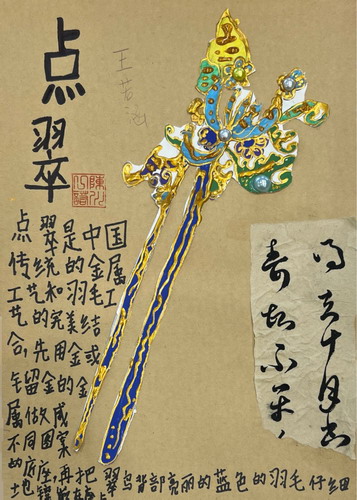 点翠
点翠是中国
传统的金属
工艺和羽毛工
艺的完美结
合,先用金或
镏金的金
属做成
不同图案
的底座,再把翠鸟背部亮丽的蓝色的羽毛仔细
地镶嵌在座上